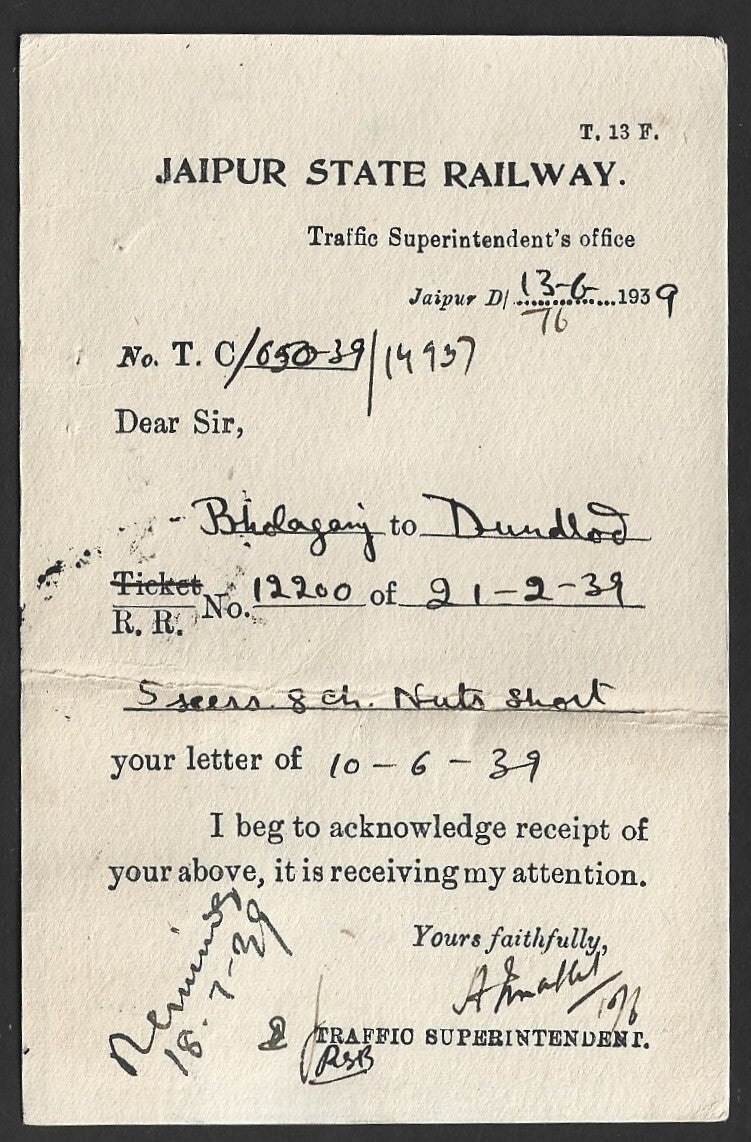 T. 13 F.
JAIPUR STATE RAILWAY.
Traffic Superintendent's office
Jaipur D/ 13-6 1939
76
No. T. C/650-39/14937
Dear Sir,
Bholaganj to Dundlod
Ticket
R. R. No. 12200 of 21-2-39
5 seers. 8 ch. Nuts Short
your letter of 10-6-39
I beg to acknowledge receipt of
your above, it is receiving my attention.
Yours faithfully,
Reminder
18-7-39
TRAFFIC SUPERINTENDENT.
RSB